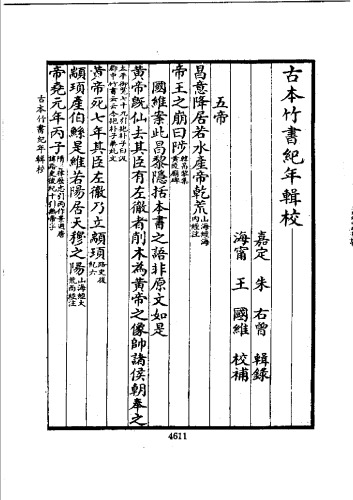 古本竹書紀年輯校
嘉定 朱右曾 輯錄
海甯 王國維 校補
五帝
昌意降居若水產帝乾荒山海經海內經注
帝王之崩曰陟韓昌黎集黃陵廟碑
國維案此昌黎隱括本書之語非原文如是
黃帝既仙去其臣有左徹者削木為黃帝之像帥諸侯朝奉之
太平御覽七十九引抱朴子曰汲
黃帝死七年其臣左徹乃立顓頊路史後紀六
顓頊產伯鯀是維若陽居天穆之陽山海經大荒西經注
帝堯元年丙子
古本竹書紀年輯校
4611